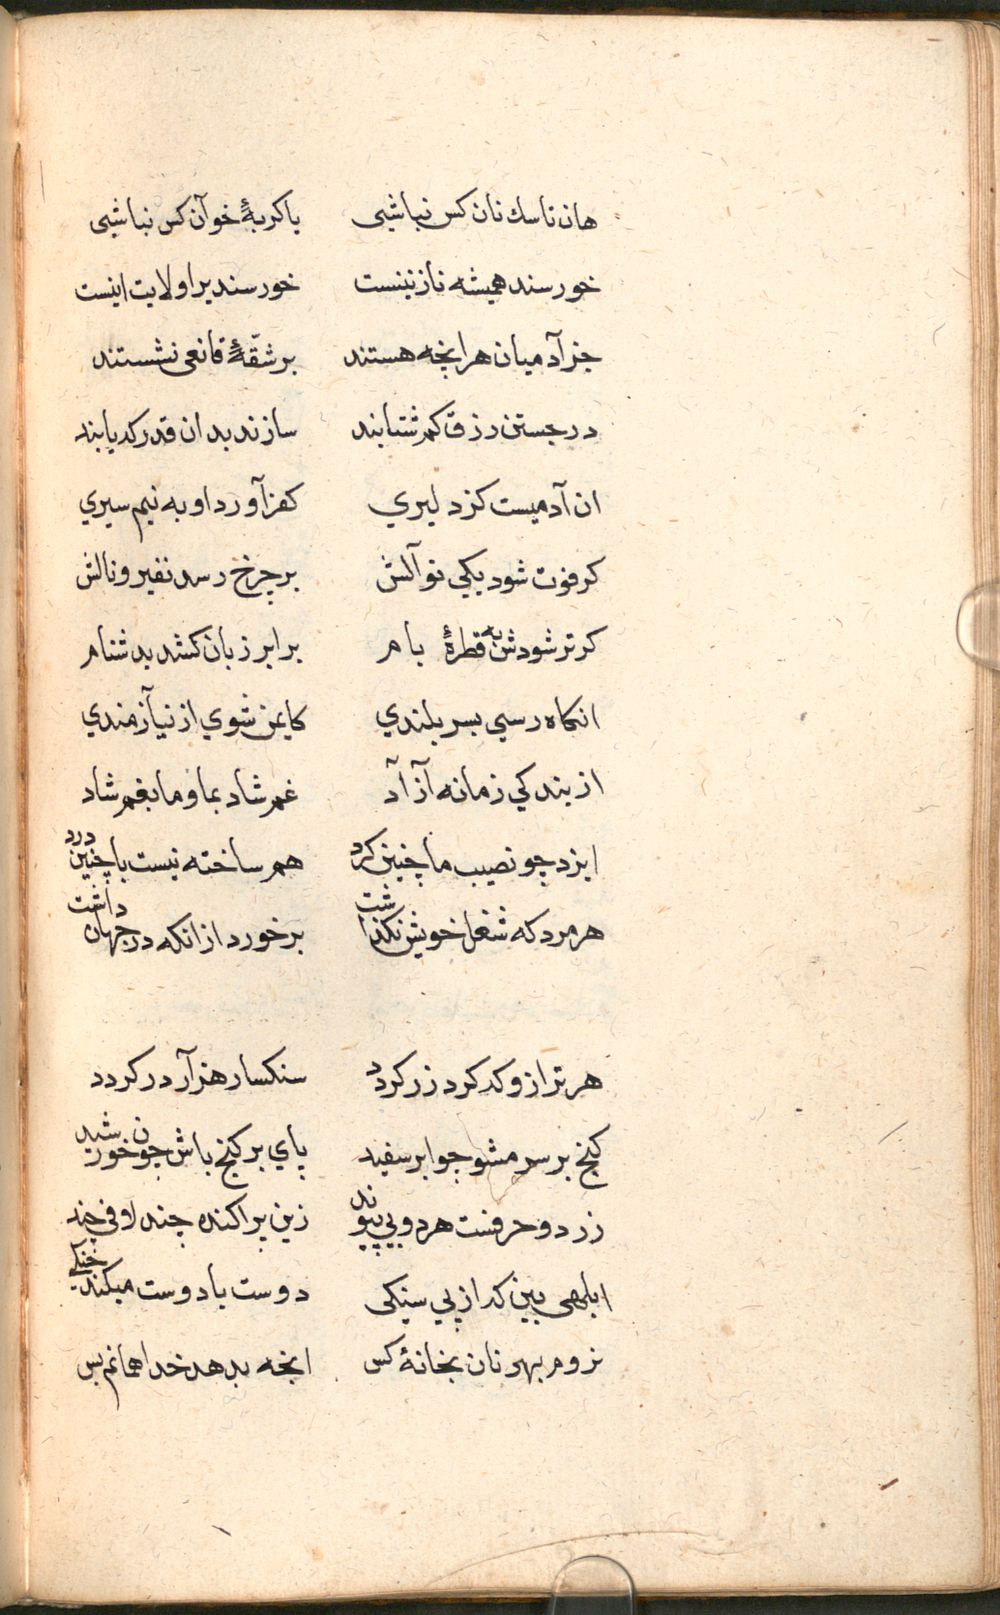 هان تا سك نان كس نباشی یا كربهٔ خوآن كس نباشی
خورسند همیشه نازنینست خورسندیرا ولایت اینست
جز آدمیان هرانچه هستند بر شقّهٔ قانعی نشستند
در جستن رزق كم شتابند سازند بدان قدر كه یابند
ان آدمیست كز دلیری كفر آورد او به نیم سیری
كر فوت شود یكی نوآلش بر چرخ رسد نفیر و نالش
كر تر شودش به قطرهٔ بام برابر زبان كشد بدشنام
انكاه رسی بسر بلندی كایمن شوی از نیآزمندی
از بندكی زمانه آزآد غم شاد بما و ما بغم شاد
ایزد چو نصیب ما چنین كرد هم ساخته نیست با چنین درد
هر مرد كه شغل خویش نكذاشت برخورد ازانكه در جهان داشت
هر ترازو كه كرد زر كردد سنكسار هزآر در كردد
كنج بر سر مشو چو ابر سفید پای بر كنج باش چون خورشید
زر دو حرفست هر دو بی پیوند زین پراكنده چند لافی چند
ابلهی بین كه از پی سنكی دوست با دوست میكند جنكی
نروم بهر نان بخانهٔ كس انچه بدهد خدا همانم بس